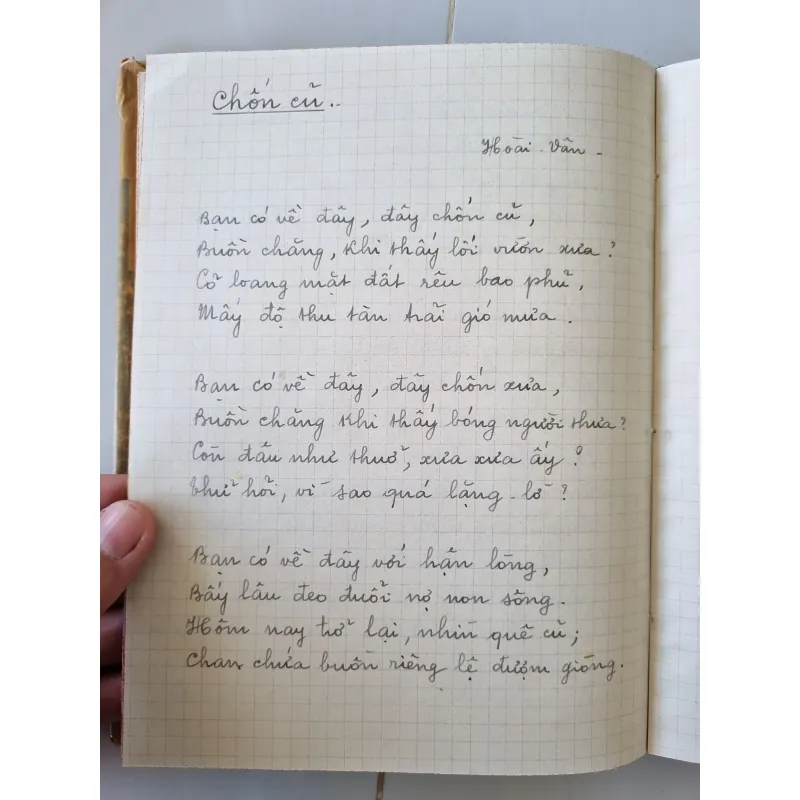 Chốn cũ..
Hoài - Vân -
Bạn có về đây, đây chốn cũ,
Buồn chăng, khi thấy lối vườn xưa?
Cỏ loang mặt đất rêu bao phủ,
Mấy độ thu tàn trải gió mưa.
Bạn có về đây, đây chốn xưa,
Buồn chăng khi thấy bóng người thưa?
Còn đâu như thuở, xưa xưa ấy?
Thử hỏi, vì sao quá lặng - lờ?
Bạn có về đây với hận lòng,
Bấy lâu đeo đuổi nợ non sông.
Hôm nay trở lại, nhìn quê cũ;
Chan chứa buồn riêng lệ đượm giòng.